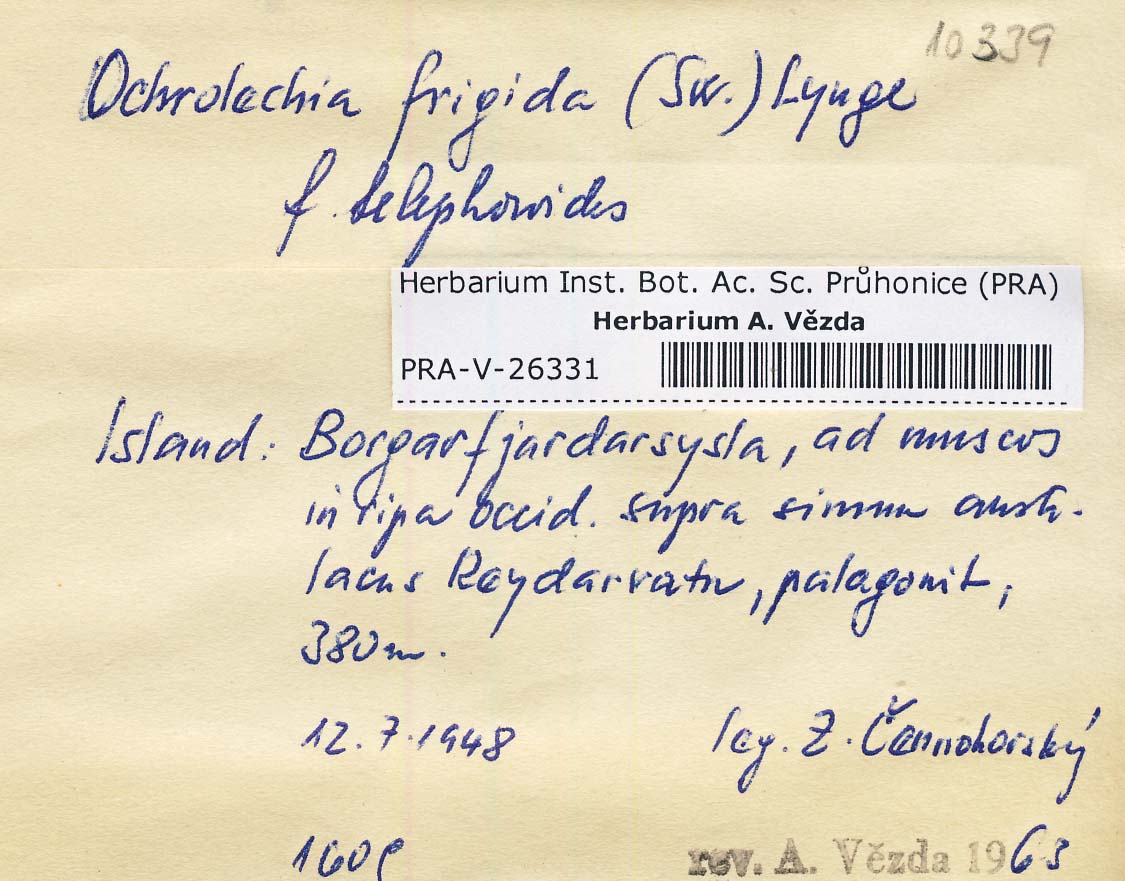 10339
Ochrolechia frigida (Sw.) Lynge
f. telephoroides
Herbarium Inst. Bot. Ac. Sc. Průhonice (PRA)
Herbarium A. Vězda
PRA-V-26331
Island: Borgarfjardarsysla, ad muscos
in ripa occid. supra sinum austr.
lacus Reydarvatn, palagonit,
380m.
12.7.1948 leg. Z. Černohorský
rev. A. Vězda 1963